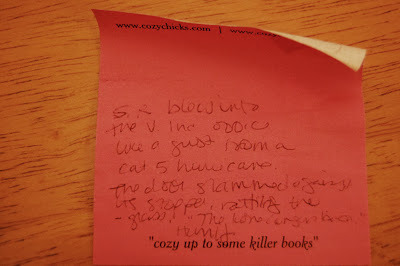 www.cozychicks.com | www.coz
S.R blew into
the V. Inc office
like a gust from a
cat 5 hurricane.
The door slammed against
its stopper, rattling the
glass. "The
"cozy up to some killer books"